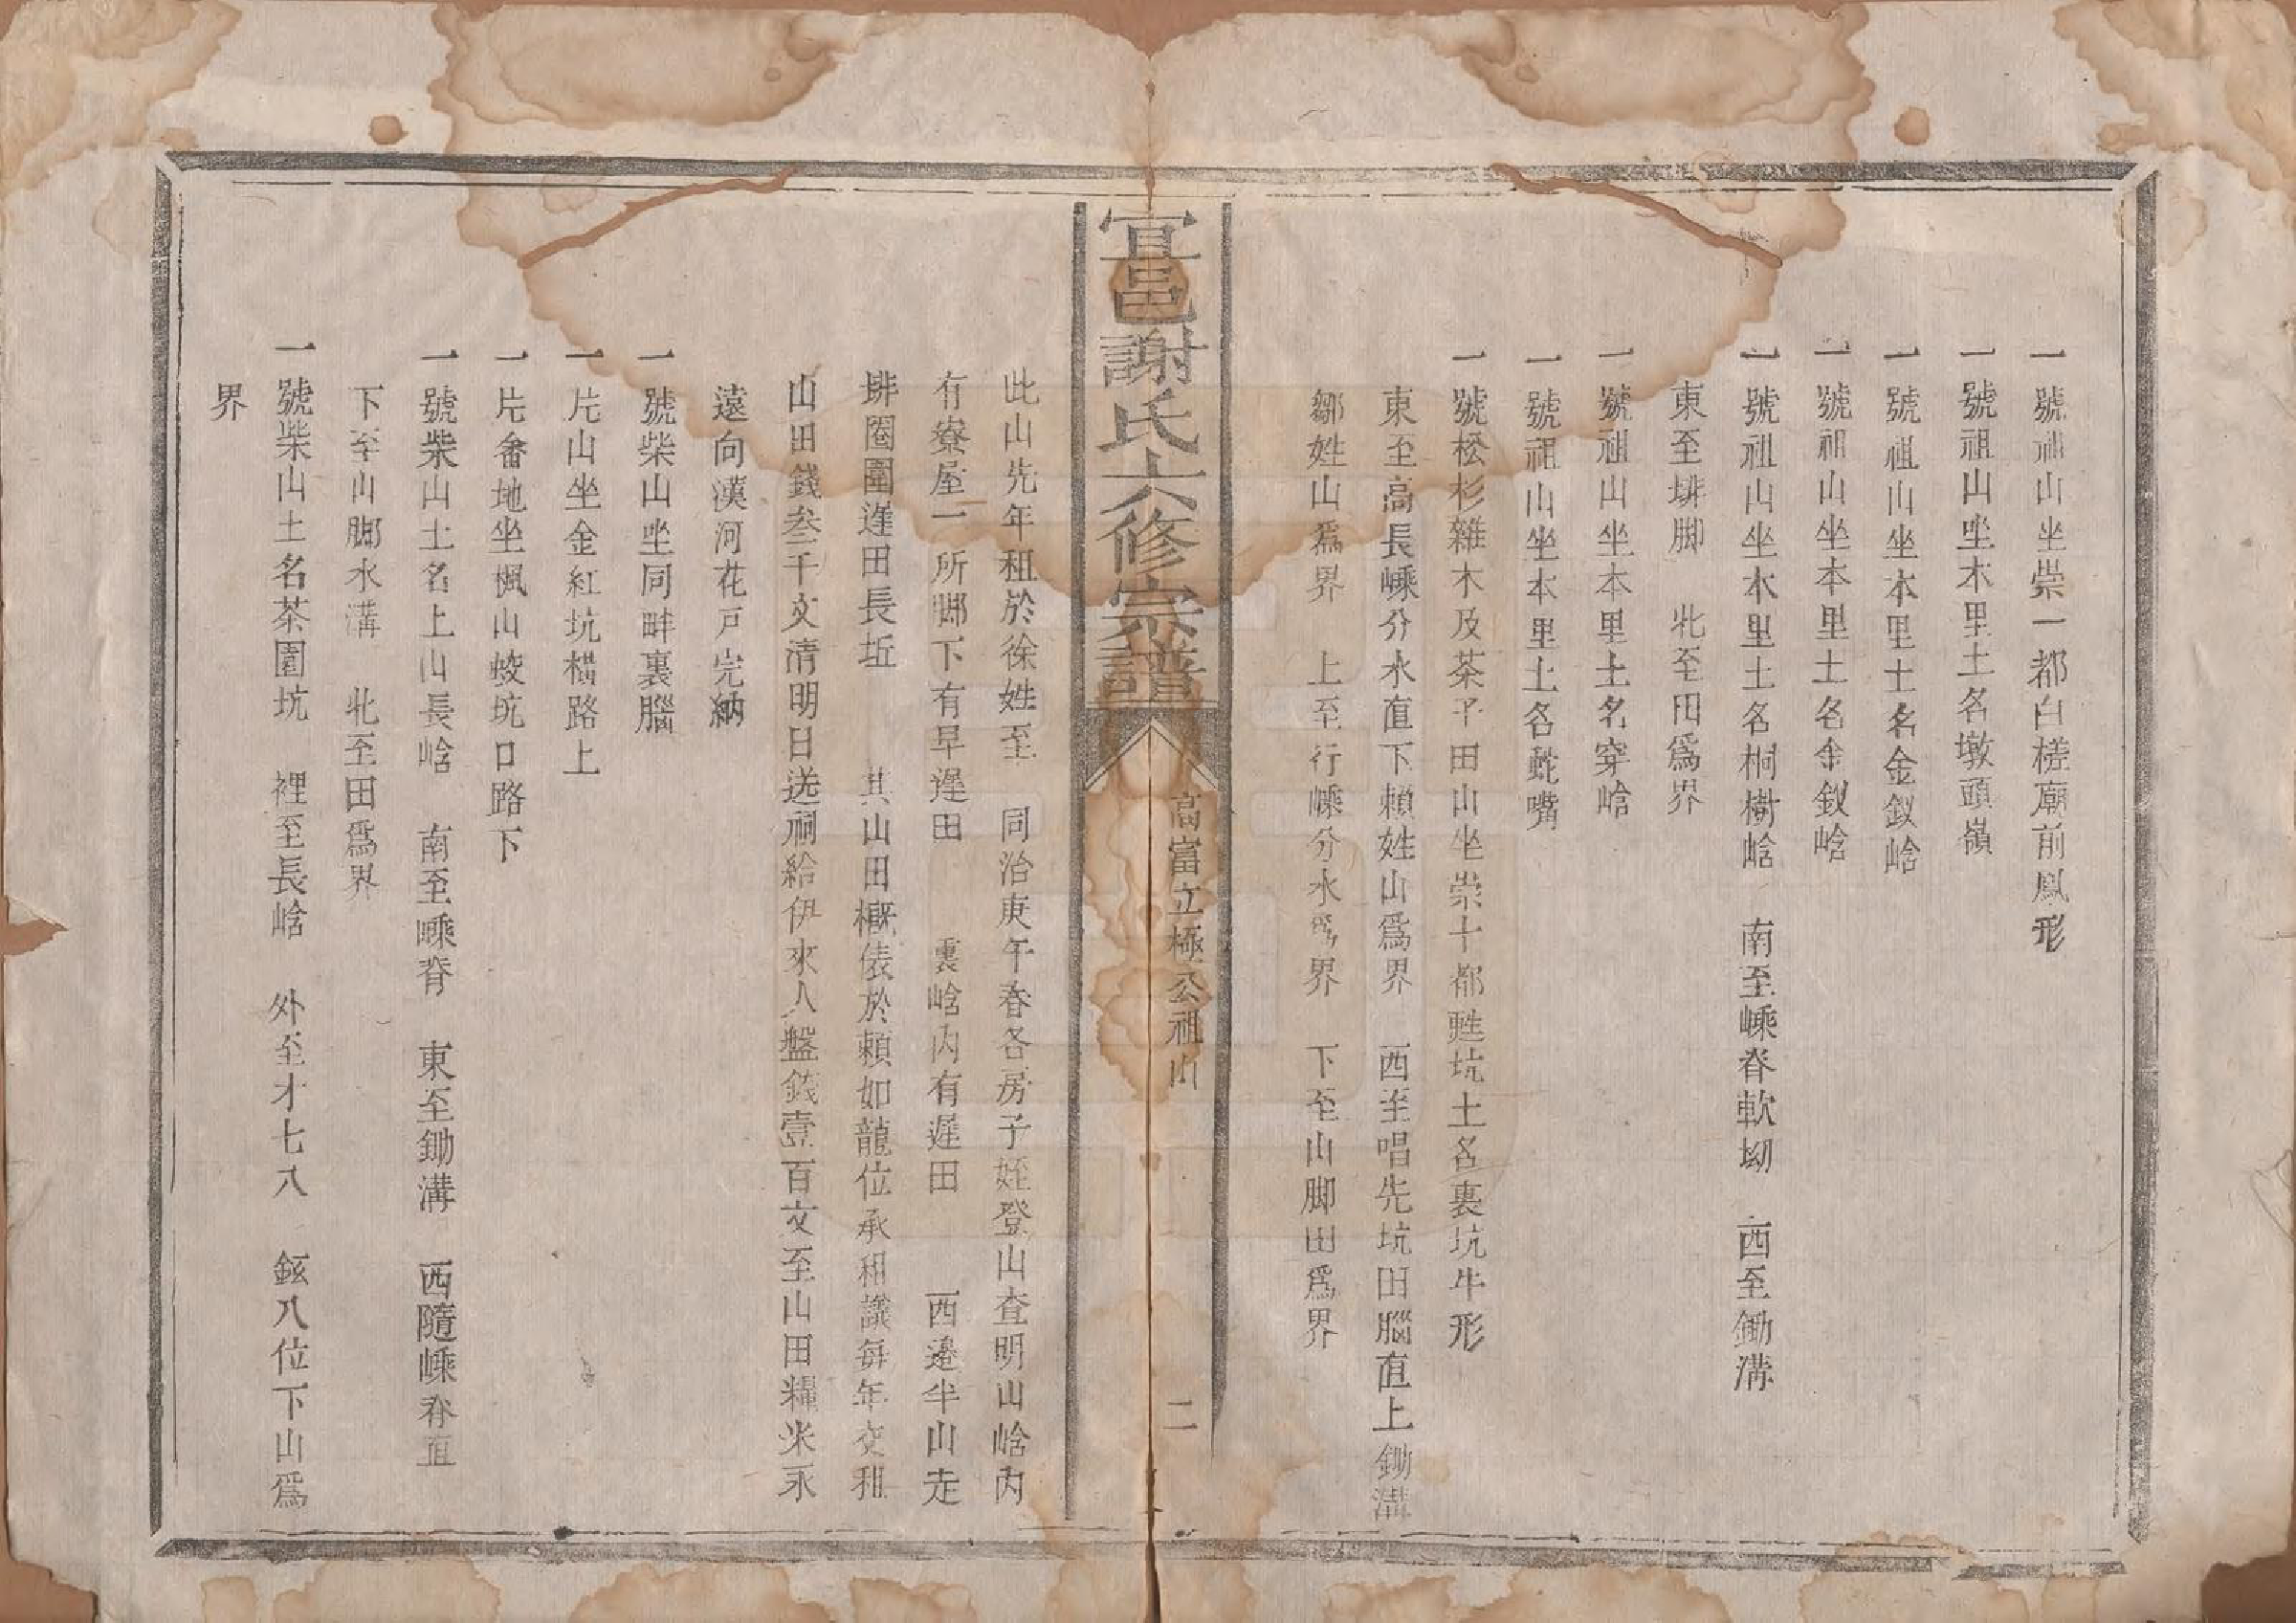 一號祖山坐崇一都白槎廟前鳳形
一號祖山坐本里土名墩頭嶺
一號祖山坐本里土名金釵峆
一號祖山坐本里土名金釵峆
一號祖山坐本里土名桐樹峆 南至嵊脊軟坳 西至鋤溝
東至埂脚 北至田爲界
一號祖山坐本里土名穿峆
一號祖山坐本里土名蛇嘴
一號松杉雜木及茶子田山坐崇十都甦坑土名裏坑牛形
東至高長嵊分水直下賴姓山爲界 西至唱先坑田腦直上鋤溝
鄒姓山爲界 上至行嵊分水爲界 下至山脚田爲界
富邑謝氏六修宗譜
高富立極公祖山
二
此山先年租於徐姓至 同治庚午春各房子姪登山查明山峆內
有寮屋一所郷下有早遲田 裏峆內有遲田 西邊半山走
排圈圍遲田長坵 其山田概俵於賴如龍位承租議每年交租
山田錢叁千文清明日送祠給伊來人盤錢壹百文至山田糧米永
遠向漢河花戸完納
一號柴山坐同畔裏腦
一片山坐金紅坑橫路上
一片畬地坐楓山崚坑口路下
一號柴山土名上山長峆 南至嵊脊 東至鋤溝 西隨嵊脊直
下至山脚水溝 北至田爲界
一號柴山土名茶園坑 裡至長峆 外至才七八 鉉八位下山爲
界